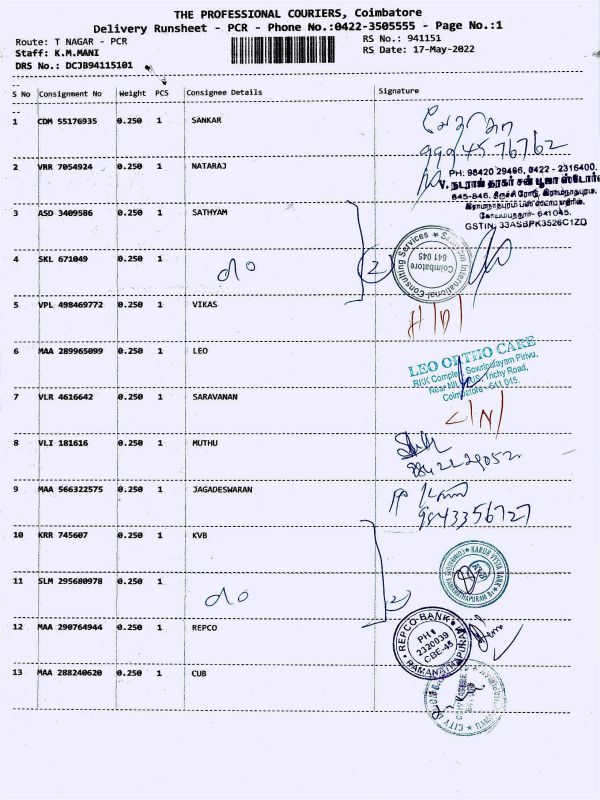 THE PROFESSIONAL COURIERS, Coimbatore
Delivery Runsheet - PCR - Phone No.:0422-3505555 - Page No.:1
Route: T NAGAR - PCR
RS No.: 941151
Staff: K.M.MANI
RS Date: 17-May-2022
DRS No.: DCJB94115101
S No Consignment No Weight PCS Consignee Details Signature
1 CDM 55176935 0.250 1 SANKAR
9994576762
2 VRR 7054924 0.250 1 NATARAJ
PH: 98420 29466, 0422 - 2316400.
V. நடராஜ நாகர் சன் பூஜா ஸ்டோர்
645-646, திருச்சி ரோடு, இராமநாதபுரம்,
இராமநாதபுரம் பஸ் ஸ்டாப் எதிரில்,
கோயமபுத்தூர்- 641045.
GSTIN: 33ASBPK3526C1ZD
3 ASD 3409586 0.250 1 SATHYAM
4 SKL 671049 0.250 1
do
2
International Consulting Services
Coimbatore
641 045
5 VPL 498469772 0.250 1 VIKAS
6 MAA 289965099 0.250 1 LEO
LEO ORTHO CARE
BKK Complex, Sowripalayam Pirivu,
Trichy Road,
Coimbatore - 641 045.
7 VLR 4616642 0.250 1 SARAVANAN
8 VLI 181616 0.250 1 MUTHU
9 MAA 566322575 0.250 1 JAGADESWARAN
9843356727
10 KRR 745607 0.250 1 KVB
KARUR VYSYA BANK
11 SLM 295680978 0.250 1
do
2
12 MAA 290764944 0.250 1 REPCO
REPCO BANK
PH:
2320039
CBE-45
RAMANATHAPURAM
13 MAA 288240620 0.250 1 CUB